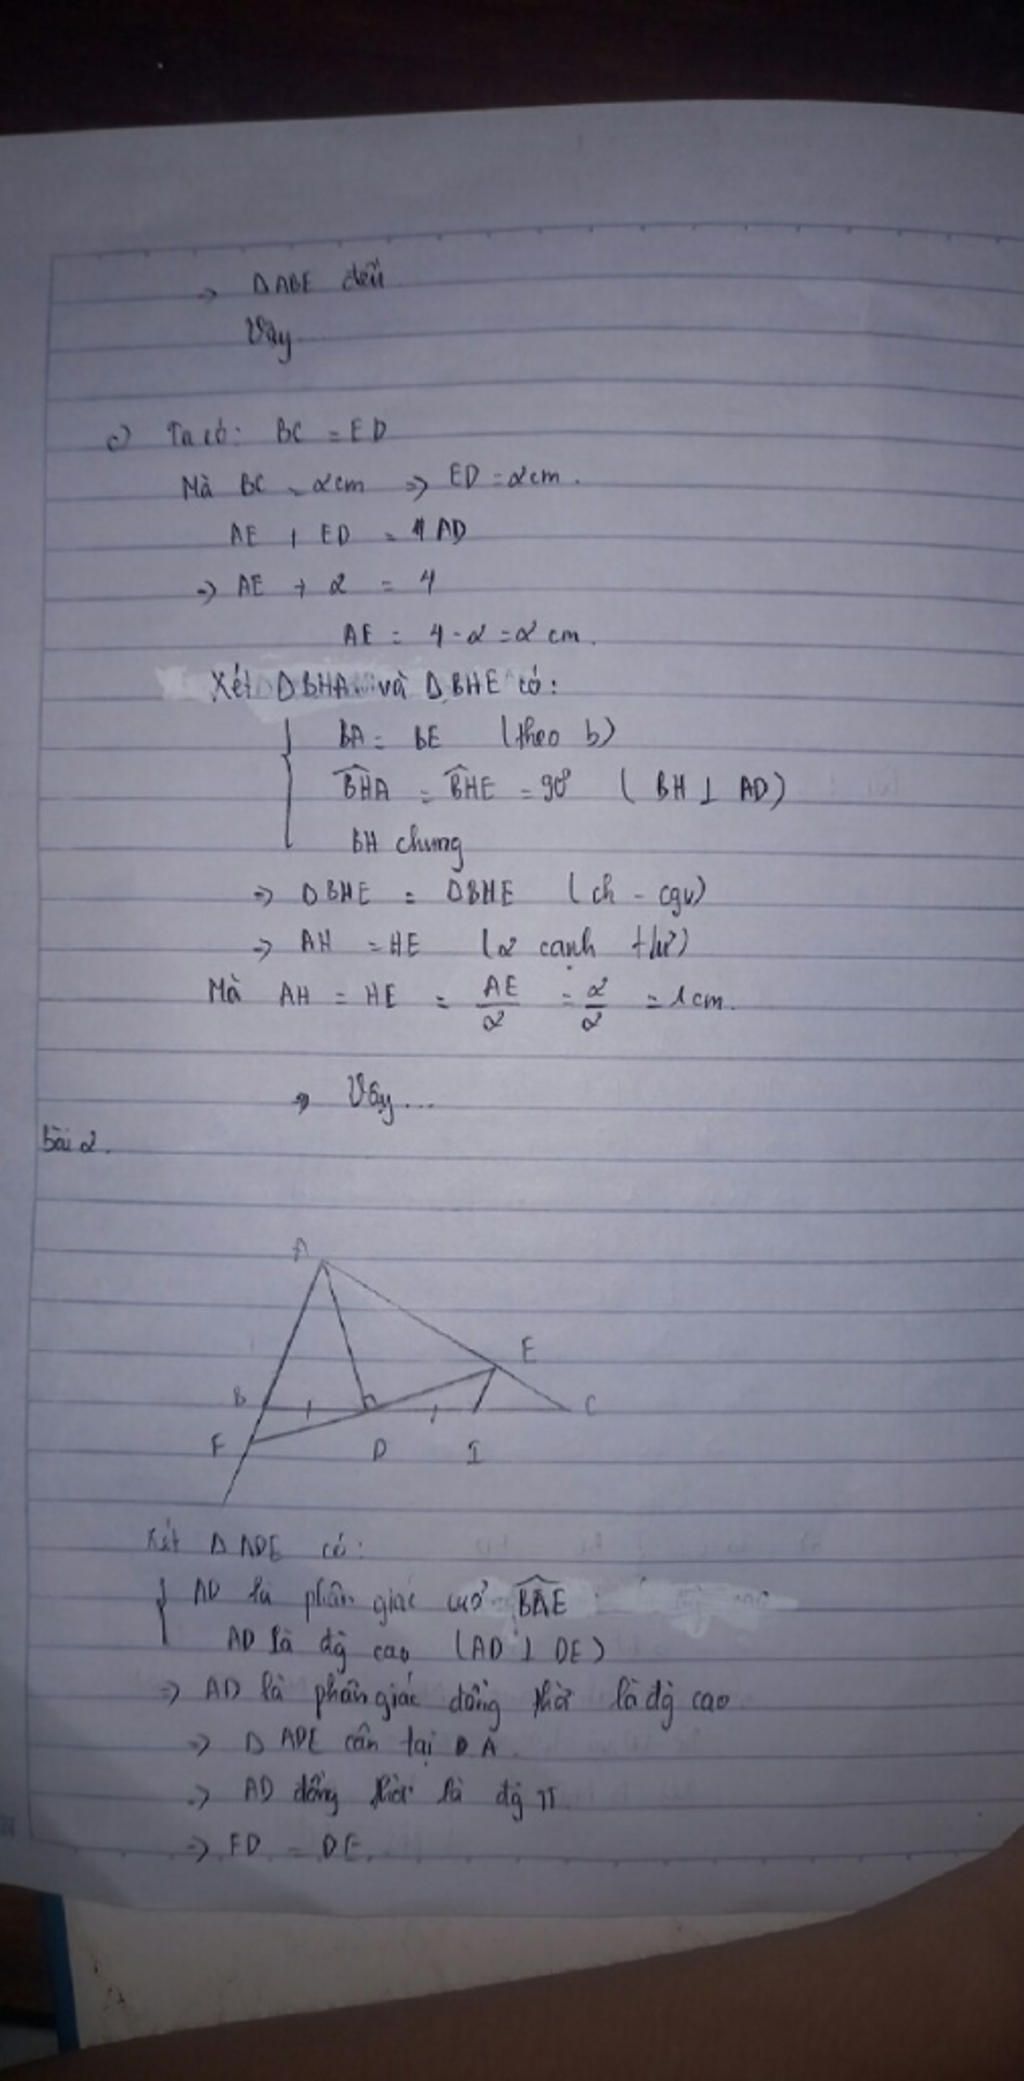 → ΔABE đều
Vậy
c) Ta có: BC = ED
Mà BC = 2cm ⇒ ED = 2cm.
AE + ED = AD
⇒ AE + 2 = 4
AE = 4 - 2 = 2 cm.
Xét ΔBHA và ΔBHE có:
BA = BE (theo b)
BHA = BHE = 90° ( BH ⊥ AD)
BH chung
⇒ ΔBHE = ΔBHE (ch - cgv)
⇒ AH = HE (2 cạnh tứ)
Mà AH = HE = AE/2 = 2/2 = 1cm.
⇒ Vậy...
bài 2.
A
E
B
C
F
D
I
Xét Δ ADE có:
AD là phân giác của BAE
AD là đg cao (AD ⊥ DE)
⇒ AD là phân giác đồng thời là đg cao
⇒ Δ ADE cân tại A.
⇒ AD đồng thời là đg TT
⇒ FD = DE.